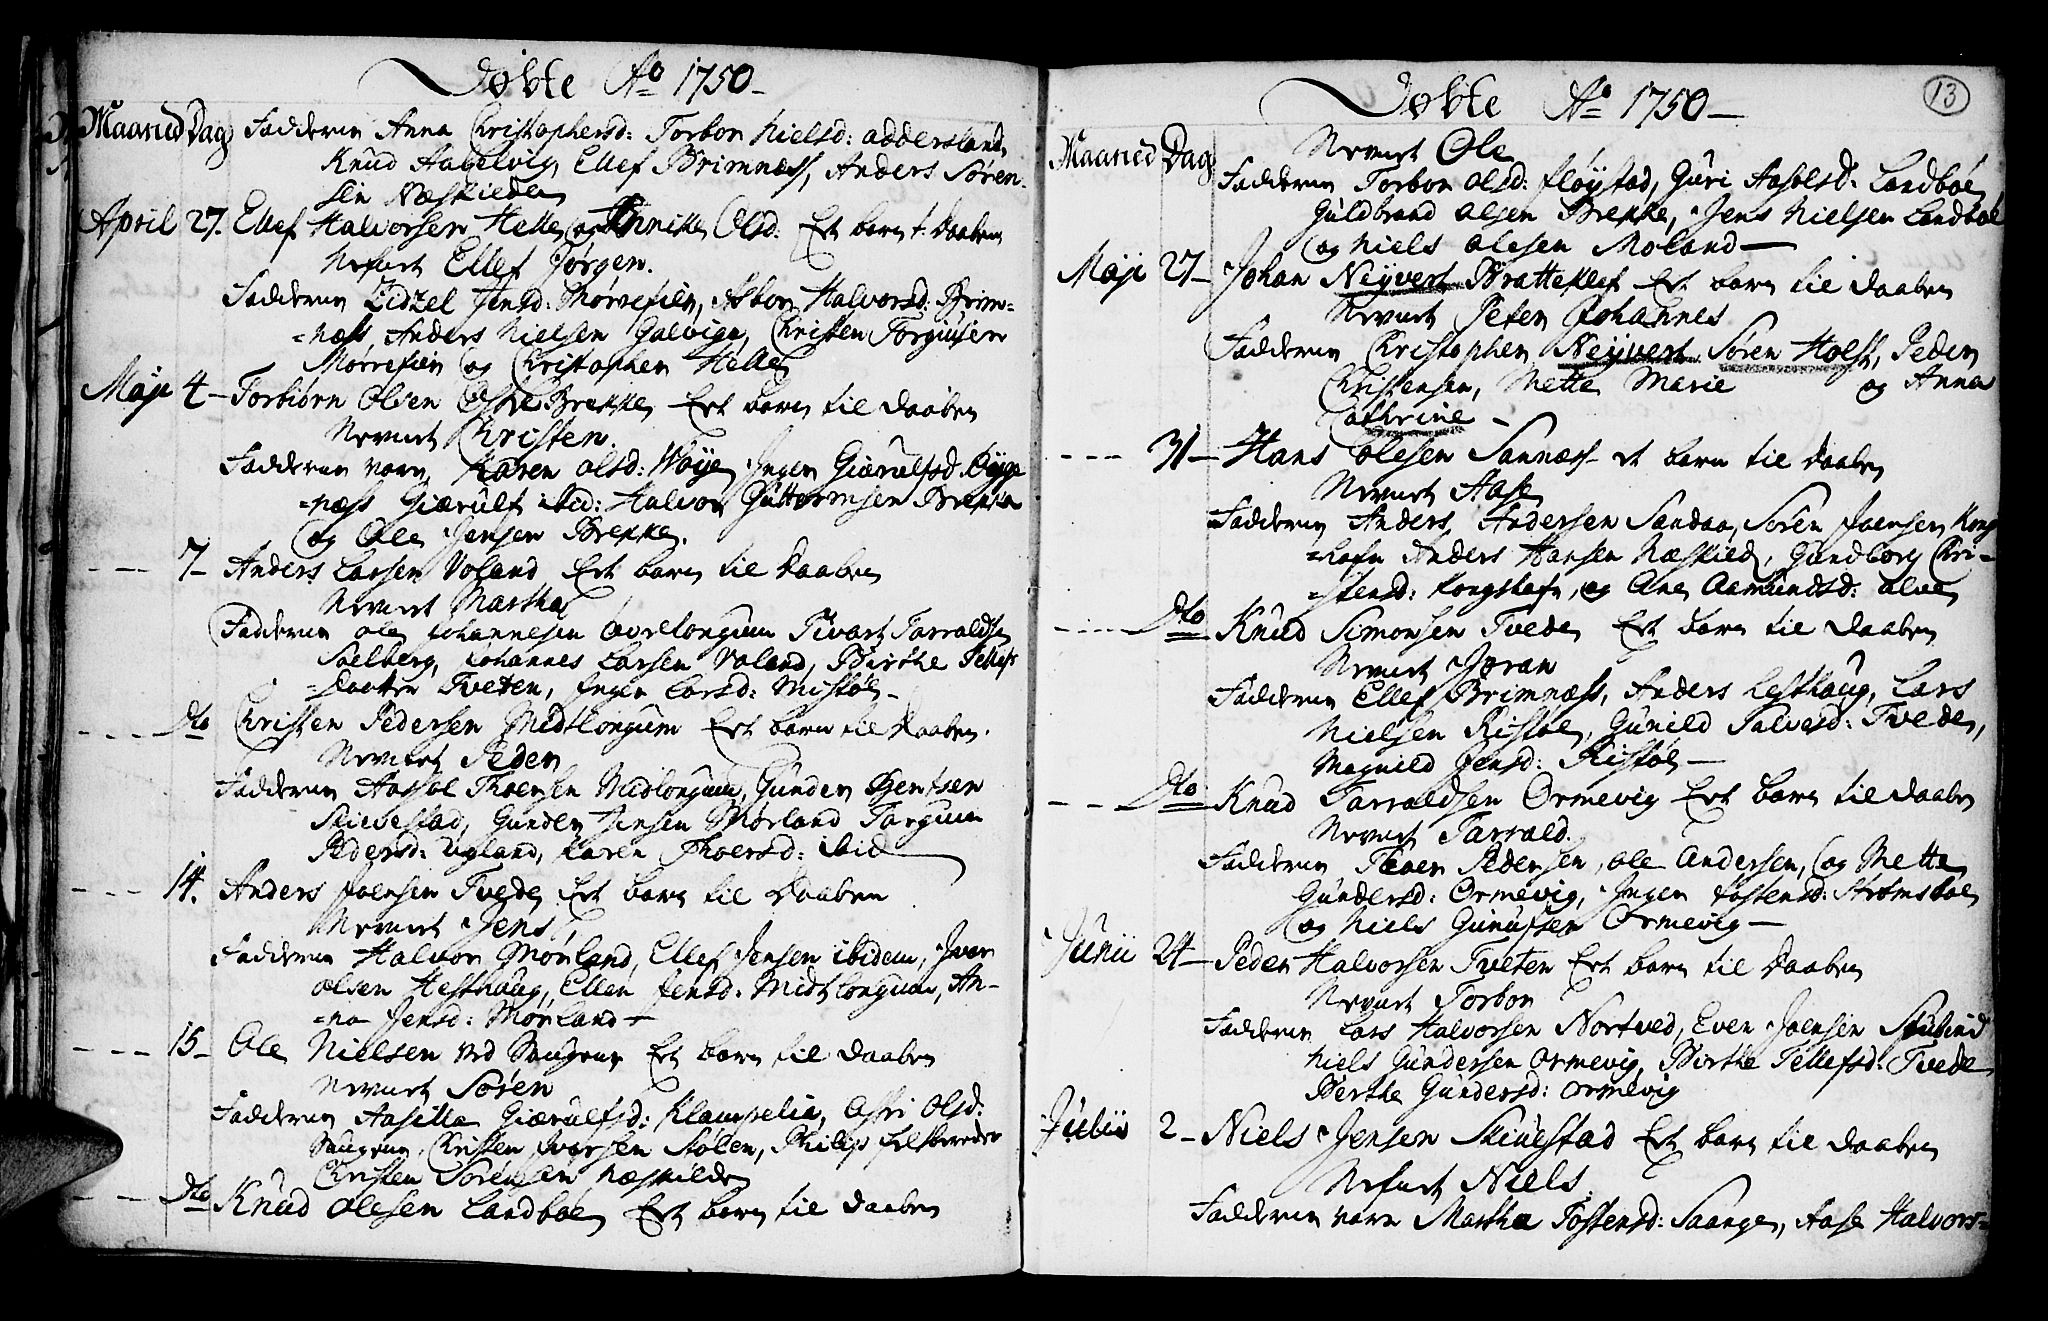 Døbte Ao 1750
Maaned Dag Fadderen Anna Christophersd: Torbor Nielsd: addersland,
Knud Hagelvig, Ellef Brimnæss, Anders Søren-
sen Næskieden
April 27. Ellef Halvorsen Helle og Annikke Olsd. Et barn t. Daaben
Nefnt Ellef Jørgen.
Fadderen Zidzel Jensd: Mørrefien, Asbor Halvorsd: Brim-
=næss, Anders Nielsen Galvigen, Christen Torgiusen
Mørrefien og Christopher Helle
Maji 4 - Torbiørn Olsen Brekke Et barn til daaben
Nevnt Christen.
Fadderen varn Karen Olsd: Woye, Ingen Giærulfsd. Bygge
=næss Giærulf ibid: Halvor Guttormsen Brekke
og Ole Jensen Brekke.
--- 7 - Anders Larsen Voland Et barn til Daaben
Nevnt Martha
Fadderen Ole Johannesen Tivart Tarraldse
Solberg, Johannes Larsen Voland, Birthe Tellefs
=daatter Tveten, Ingen Larsd: Mistøl -
--- Dto Christen Pedersen Midtlongum Et barn til Daaben.
Nevntet Peder
Fadderen Aassol Thoersen Midlongum, Gunder Bentsen
Skivestad, Gunder Jensen Mørland Targun
Pedersd: Ugland, Karen Thoersd: ibid
--- 14. Anders Joensen Tvede Et barn til Daaben
Nevnt Jens
Fadderen Halvor Mørland, Ellef Jensen ibidem, Iver
Olsen Hesthaug, Ellen Jensd: Midtlongum, An-
=na Jensd: Mørland -
--- 15 - Ole Nielsen ved Saugene Et barn til daaben
Nevnt Søren
Fadderen Aasille Giærulfsd: Klamrelia, Astri Olsd:
Saugene, Christen Iversen Stølen, Philip
Christen Sørensen Næskilde
--- Dto Knud Olesen Landbøe Et barn til daaben
13
Døbte Ao 1750 -
Maaned Dag Nevnt Ole
Fadderen Torbor Olsd: fløystad, Guri Aasolsd: Landbøe
Guldbrand Olsen Brekke, Jens Nielsen Landbøe
og Niels Olesen Moland -
Maji 27 - Johan Neyvert Bratteklef Et barn til daaben
Nevnt Peter Johannes
Fadderen Christopher Neyvert Søren Holst, Peder
Christensen, Mette Marie og Anna
Cathrine -
--- 31 - Hans Olesen Sannæss et barn til daaben
Nevnt Aase
Fadderen Anders Andersen Sandaa, Søren Joensen Kong
=hafn Anders Hansen Næskild, Gundborg Chri-
=stensd: Kongshafn, og Ane Aamundsd: alve
--- Dto Knud Simonsen Tvede Et barn til daaben
Nevnt Joran
Fadderen Ellef Brimnæss, Anders Hesthaug, Lars
Nielsen Ristøl, Gunild Salvesd: Tvede,
Magnild Jensd: Ristøl -
--- Dto Knud Tarraldsen Ormevig Et barn til daaben
Nevnt Tarrald.
Fadderen Pedersen, Ole Andersen, og Mette
Gundersd: Ormevig, Ingen Tostensd: Strømsbøe
og Niels Gunufsen Ormevig -
Junii 24 - Peder Halvorsen Tveten Et barn til Daaben
Nevnt Torbor
Fadderen Lars Halvorsen Nortved, Even Joensen
Niels Gundersen Ormevig, Birthe Tellefsd: Tvede
Berthe Gundersd: Ormevig
Julii 2 - Niels Jensen Skiuestad Et barn til daaben
Nefnt Niels.
Fadderen varn Martha Tostensd: Saange, Aase Halvors=